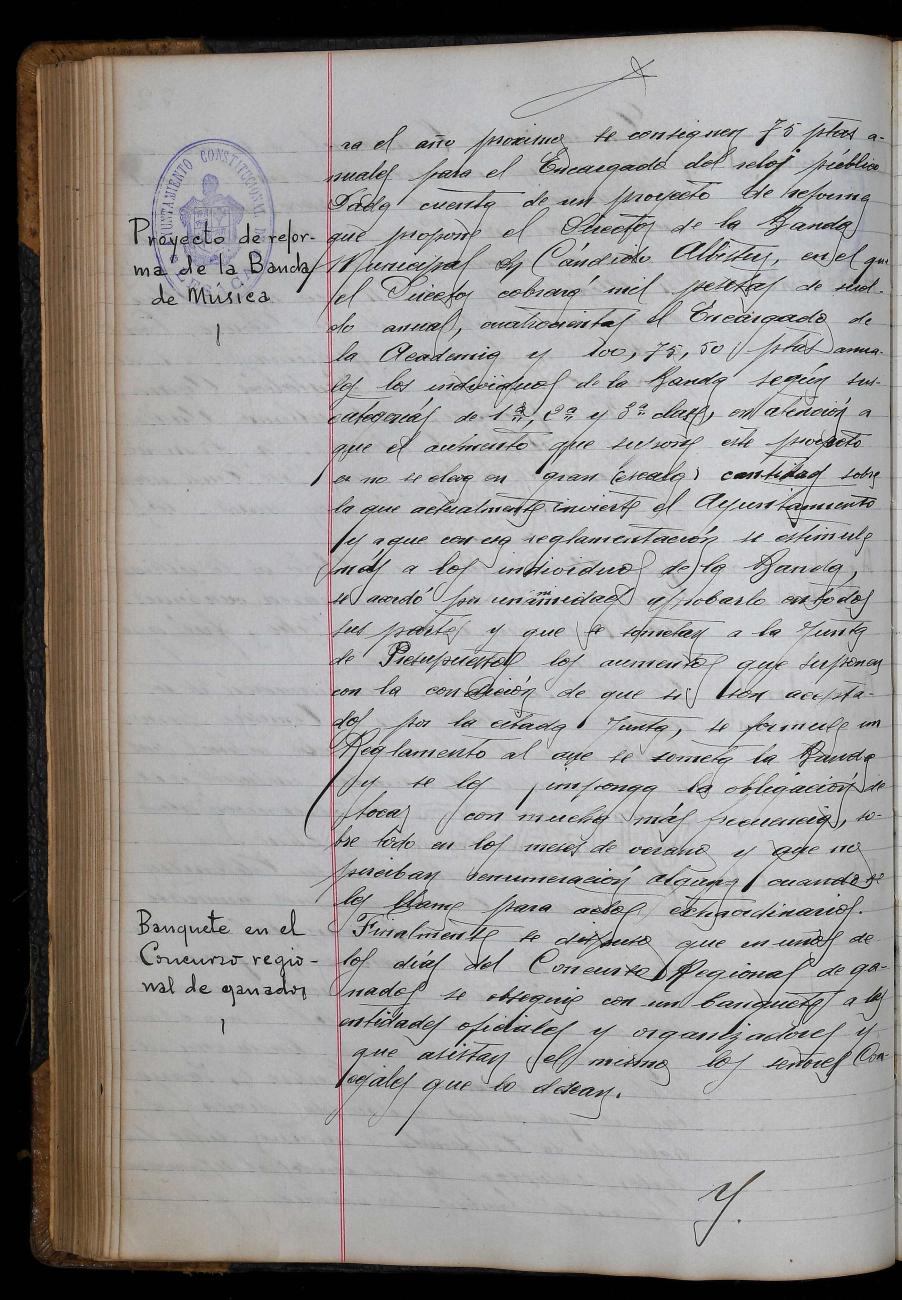 AYUNTAMIENTO CONSTITUCIONAL DE
ra el año próximo se consignen 75 ptas a-
nuales para el Encargado del reloj público
Dada cuenta de un proyecto de reforma
que propone el Director de la Banda
Municipal Dn Cándido Albistur, en el que
el Director cobrará mil pesetas de suel-
do anual, cuatrocientas el Encargado de
la Academia y 100, 75, 50 ptas anua-
les los individuos de la Banda según sus
categorías de 1ª, 2ª y 3ª clase, en atención a
que el aumento que supone este proyecto
no se eleva en gran (escala) cantidad sobre
la que actualmente invierte el Ayuntamiento
y a que con esa reglamentación se estimule
más a los individuos de la Banda,
se acordó por unanimidad aprobarlo en todas
sus partes y que se sometan a la Junta
de Presupuestos los aumentos que suponen
con la condición de que si son acepta-
dos por la citada Junta, se formule un
Reglamento al que se someta la Banda
y se les imponga la obligación de
tocar con mucha más frecuencia, so-
bre todo en los meses de verano y que no
perciban remuneración alguna cuando se
les llame para actos extraordinarios.
Finalmente se dispuso que en unos de
los días del Concurso Regional de ga-
nados se obsequie con un banquete a las
entidades oficiales y organizadores y
que asistan el mismo los señores Con-
cejales que lo desean.
Y.
Proyecto de refor-
ma de la Banda
de Música
Banquete en el
Concurso regio-
nal de ganados